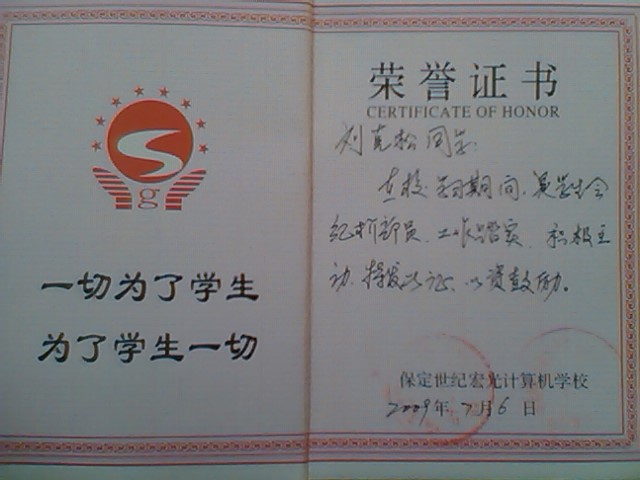 g
一切为了学生
为了学生一切
荣誉证书
CERTIFICATE OF HONOR
刘克松同学:
在校学习期间，是学生会
纪检部员、工作踏实、积极主
动、特发此证、以资鼓励。
保定世纪宏光计算机学校
2009年7月6日